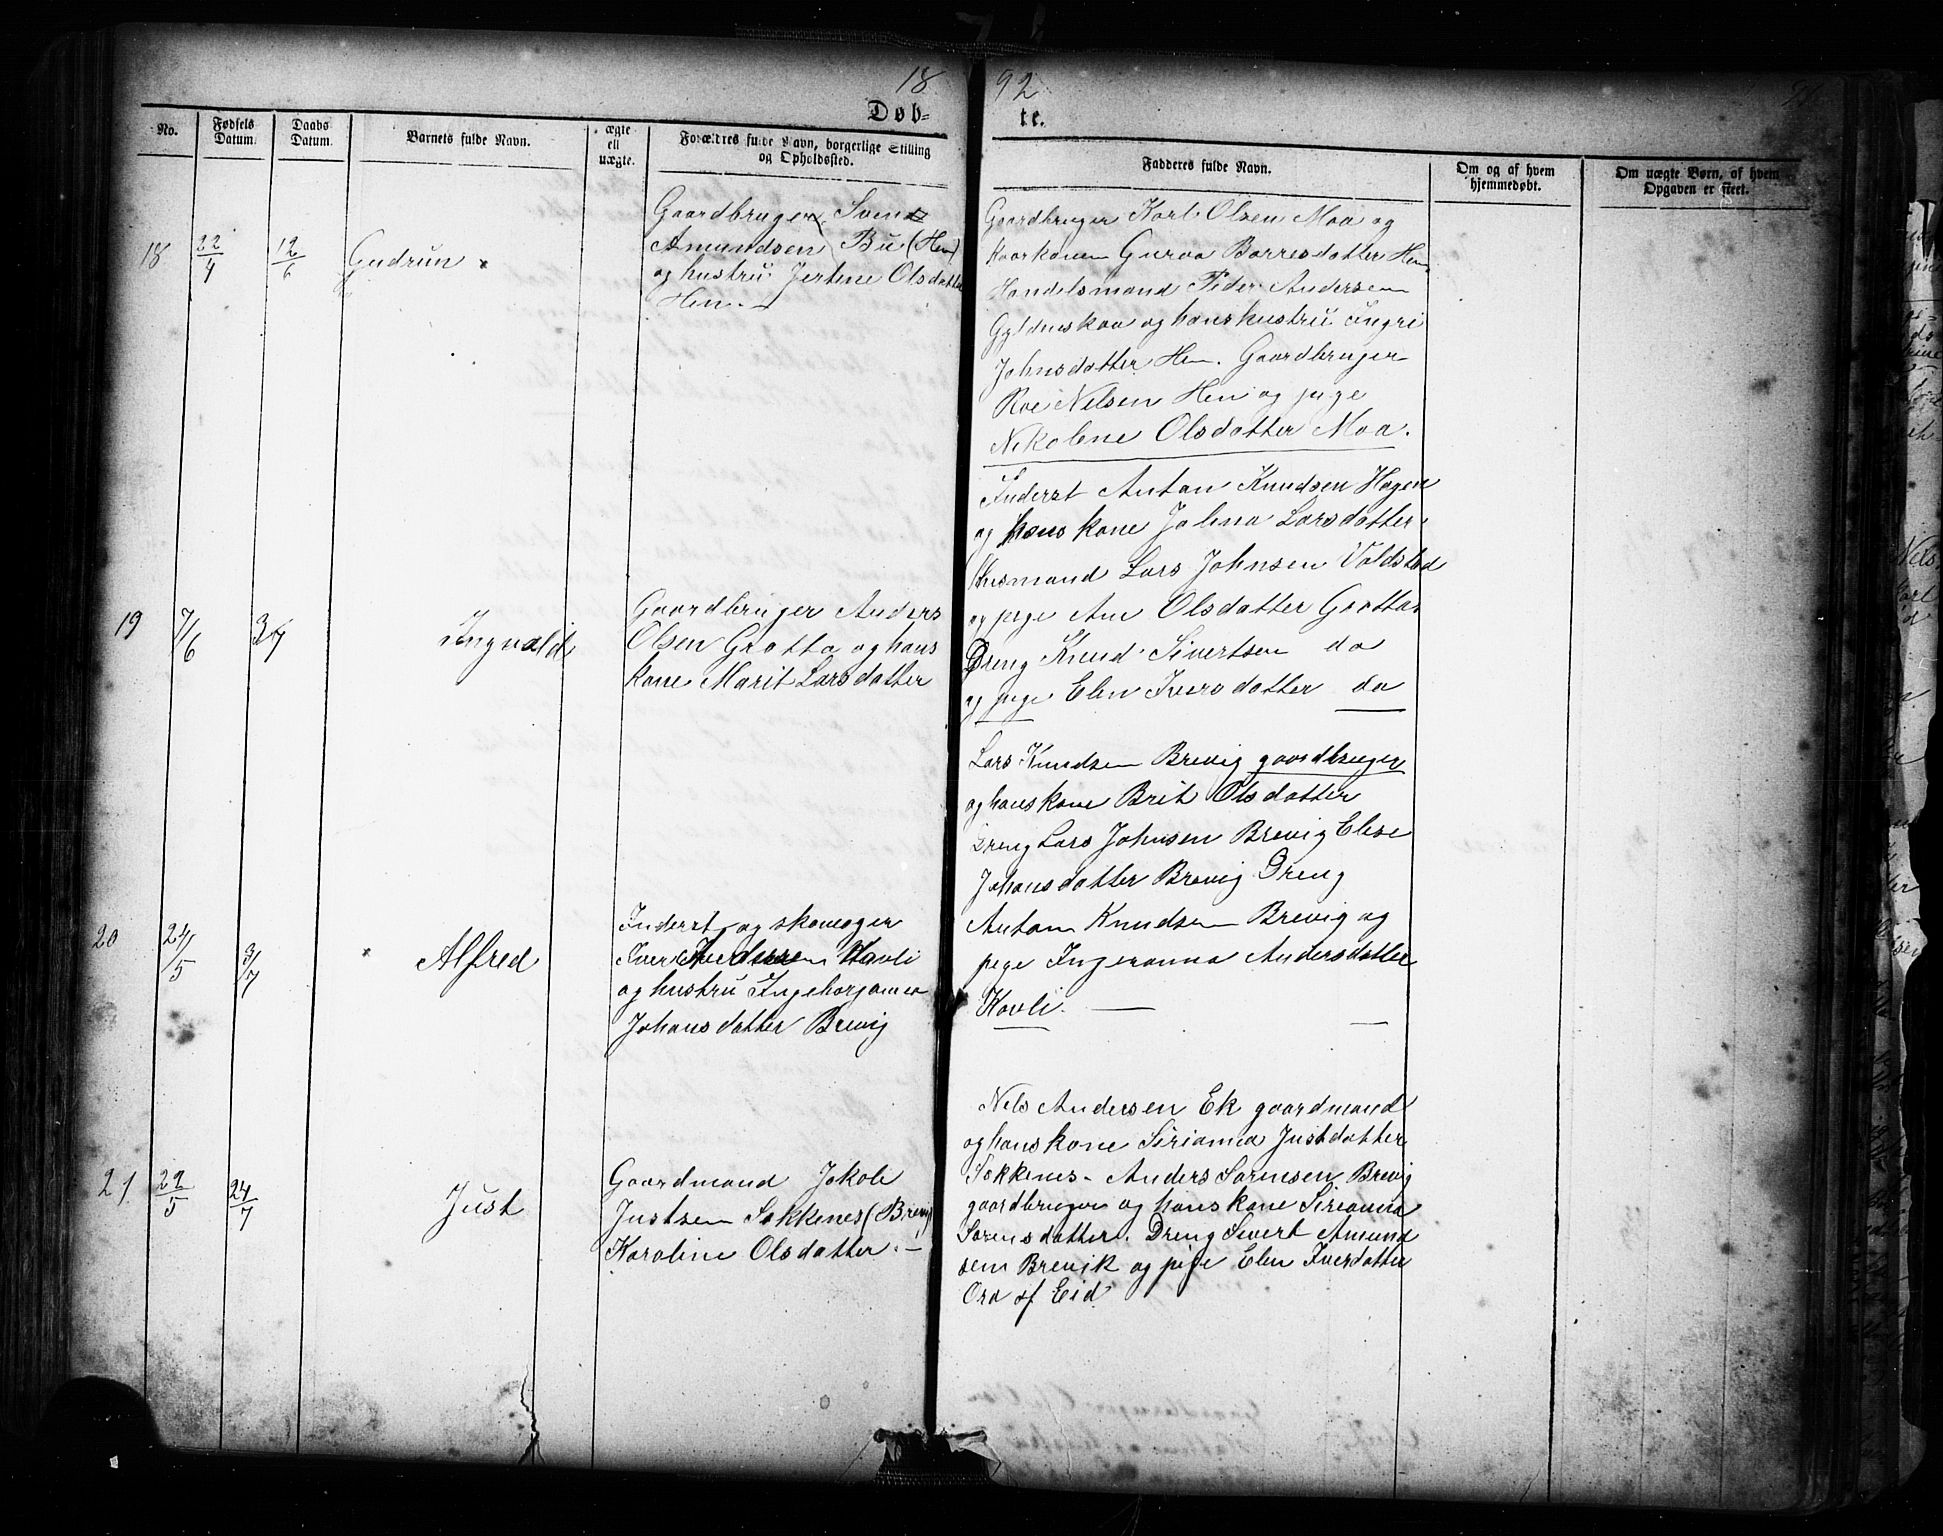 18 92
Døb- te.
No.
Fødsels Datum.
Daabs Datum.
Barnets fulde Navn.
ægte ell uægte.
Forældres fulde Navn, borgerlige Stilling og Opholdssted.
Fadderes fulde Navn.
Om og af hvem hjemmedøbt.
Om uægte Børn, af hvem Opgaven er skeet.
18
22/4
12/6
Gudrun
Gaardbruger Svend
Amundsen Bu (Hen)
og hustru Jertine Olsdatter
Hen.
Gaardbruger Karl Olsen Moa og
Kaarkone Guroa Barresdatter Hen
Handelsmand Peder Andersen
Gyldenskaa og hans hustru Ingri
Johnsdatter Hen. Gaardbruger
Roe Nelsen Hen og pige
Nikoline Olsdatter Moa.
19
7/6
3/7
Ingvald
Gaardbruger Anders
Olsen Grotta og hans
kone Marit Larsdatter
Inderst Anton Knudsen Hagen
og hans kone Jolina Larsdatter
Husmand Lars Johnsen Voldstad
og pige An Olsdatter Grotta
Dreng Knud Sivertsen do
og pige Elen Iversdatter do
20
24/5
3/7
Alfred
Inderst og skomager
Iver Andersen Havli
og hustru Ingeborganna
Johansdatter Brevig
Lars Knudsen Brevig gaardbruger
og hans kone Brit Olsdatter
Dreng Lars Johnsen Brevig Elise
Johansdatter Brevig Dreng
Anton Knudsen Brevig og
pige Ingeranna Andersdatter
Havli.
21.
22/5
24/7
Just
Gaardmand Jakob
Justsen Sekkenes (Brevig)
Karoline Olsdatter.
Nels Andersen Ek gaardmand
og hans kone Sirianna Justdatter
Sekkenes - Anders Sørensen Brevig
gaardbruger og hans kone Sirianna
Sørensdatter. Dreng Sivert Amund
sen Brevik og pige Elen Iversdatter
Ora af Eid